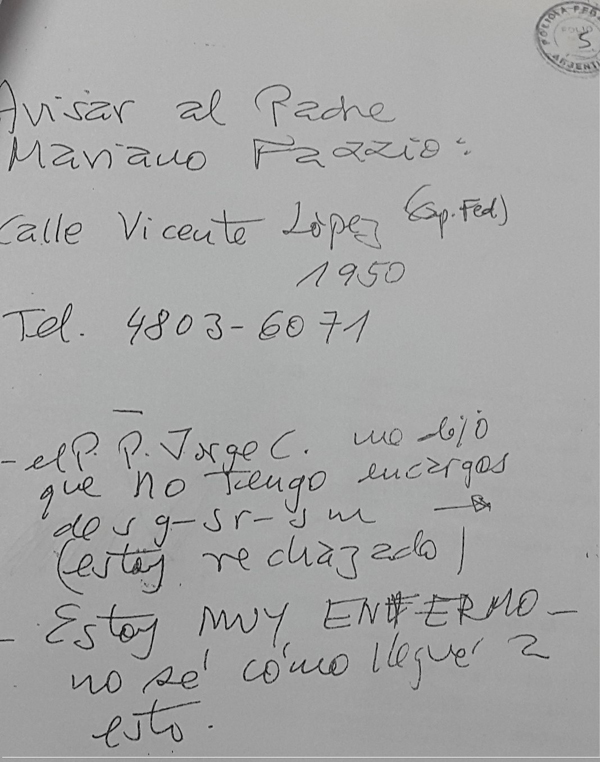 Avisar al Padre
Mariano Fazzio:
Calle Vicente López (Cap. Fed)
1950
Tel. 4803-6071
- el P. P. Jorge C. me dijo
que no tengo encargos
de s g-sr-sm →
(estoy rechazado)
- Estoy MUY ENFERMO -
no sé cómo llegué a
esto.
POLICIA FED
FOLIO
5
ARGENTI